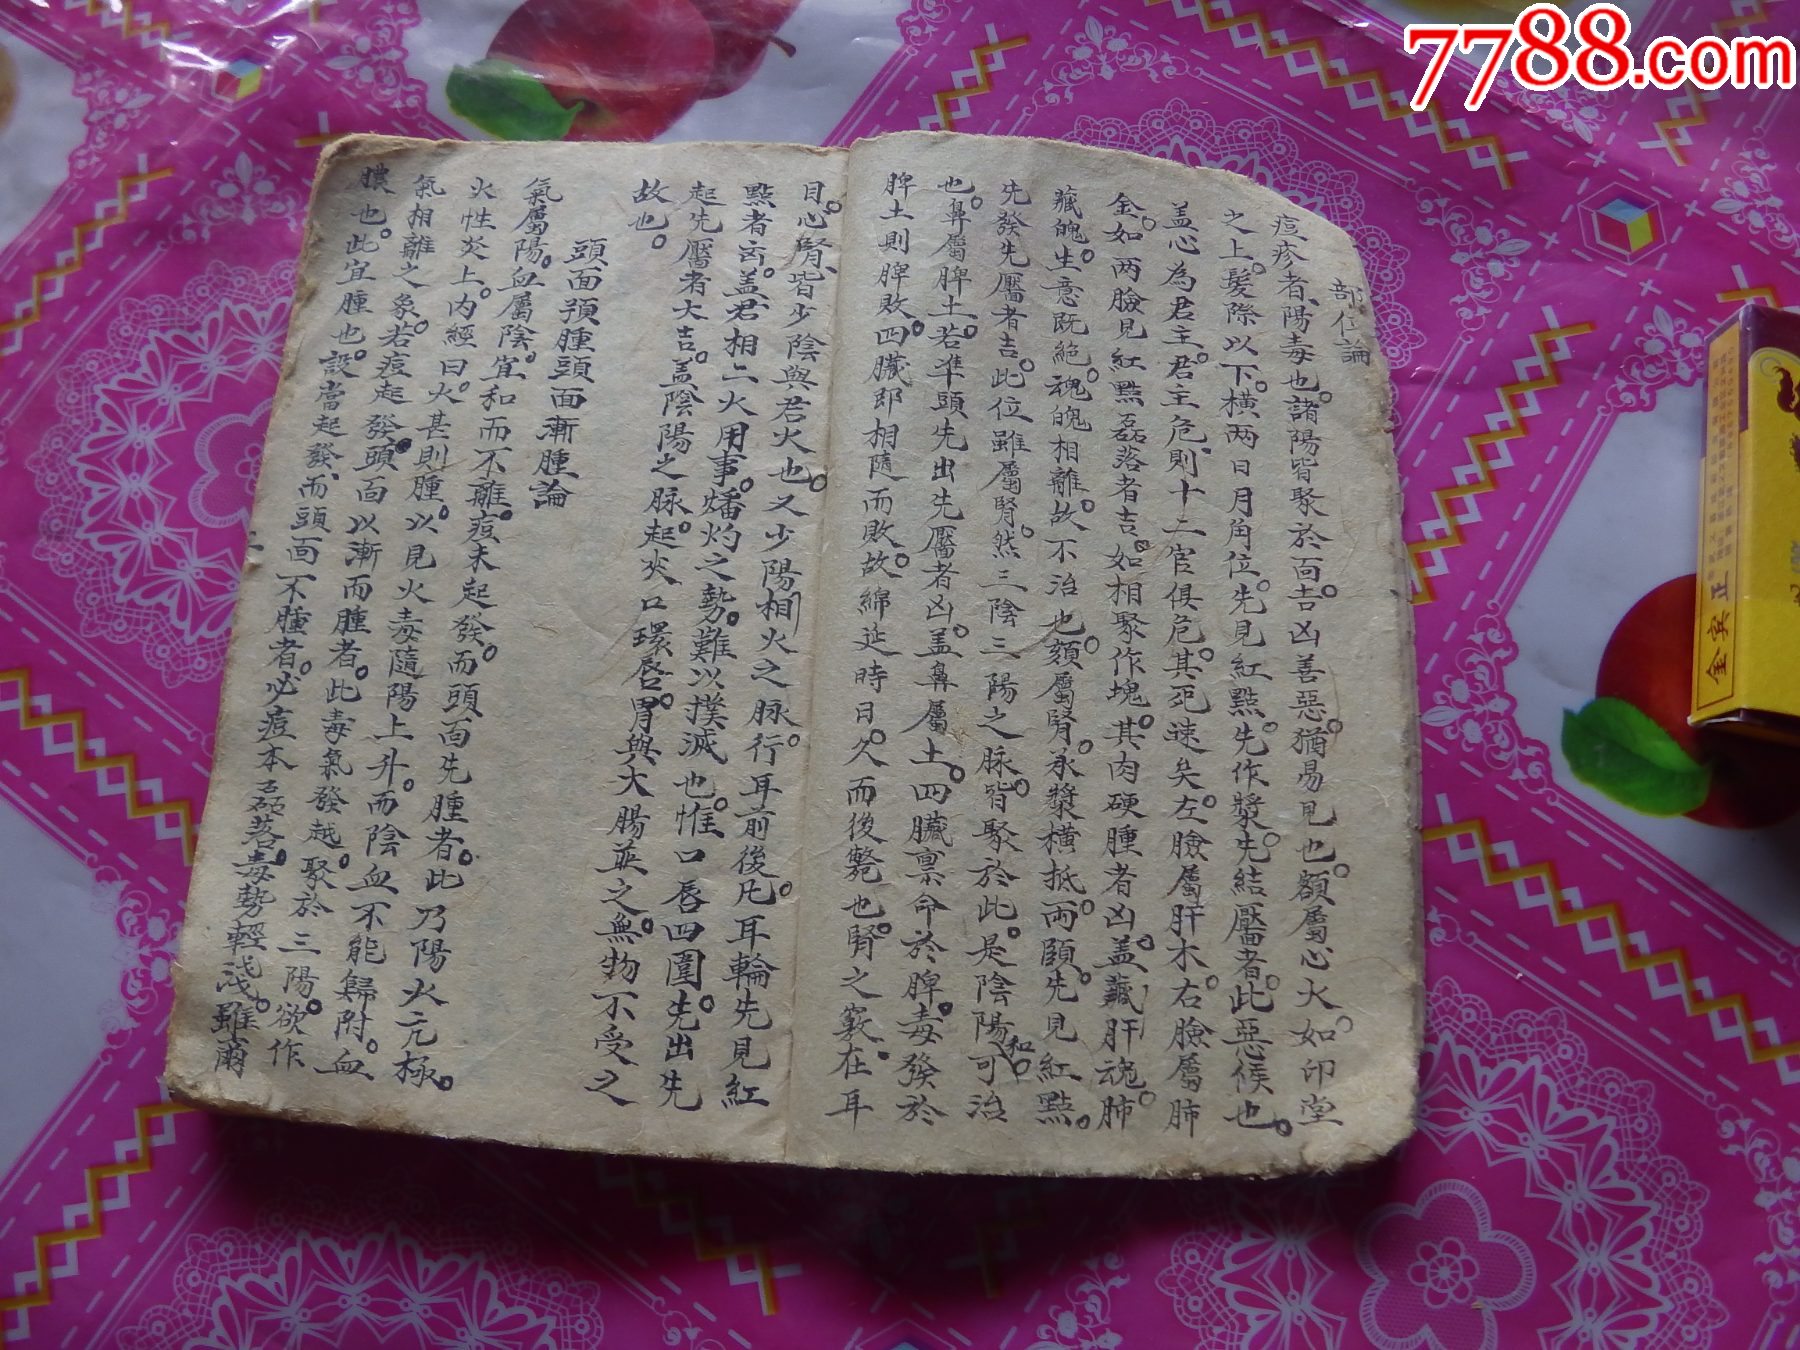 7788.com
部位論
痘疹者、陽毒也。諸陽皆聚於面。吉凶善惡。猶易見也。額屬心火。如印堂
之上。髮際以下。橫两日月角位。先見紅點。先作漿。先結靨者。此惡候也。
盖心為君主。君主危。則十二官俱危。其死速矣。左臉屬肝木。右臉屬肺
金。如两臉見紅點磊落者吉。如相聚作塊。其肉硬腫者凶。盖藏肝魂。肺
藏魄。生意既絕。魂魄相離。故不治也。頦屬腎。承漿橫抵两頤。先見紅點。
先發先靨者吉。此位雖屬腎。然三陰三陽之脉。皆聚於此。是陰陽和。可治
也。鼻屬脾土。若準頭先出先靨者凶。盖鼻屬土。四臟禀命於脾。毒發於
脾土則脾敗。四臟即相隨而敗。故綿延時日。久而後斃也。腎之竅。在耳
目。心腎、皆少陰與君火也。又少陽相火之脉。行耳前後。凡耳輪先見紅
點者凶。盖君相二火用事。燔灼之勢。難以撲滅也。惟口唇四圍。先出先
起先靨者大吉。盖陰陽之脉。起夾口環唇。胃與大腸並之。無物不受之
故也。
頭面預腫頭面漸腫論
氣屬陽。血屬陰。宜和而不離。痘未起發。而頭面先腫者。此乃陽火亢極。
火性炎上。內經曰。火甚則腫。以見火毒隨陽上升。而陰血不能歸附。血
氣相離之象。若痘起發。頭面以漸而腫者。此毒氣發越。聚於三陽。欲作
膿也。此宜腫也。設當起發、而頭面不腫者。必痘本磊落。毒勢輕淺。雖爾
金宾正